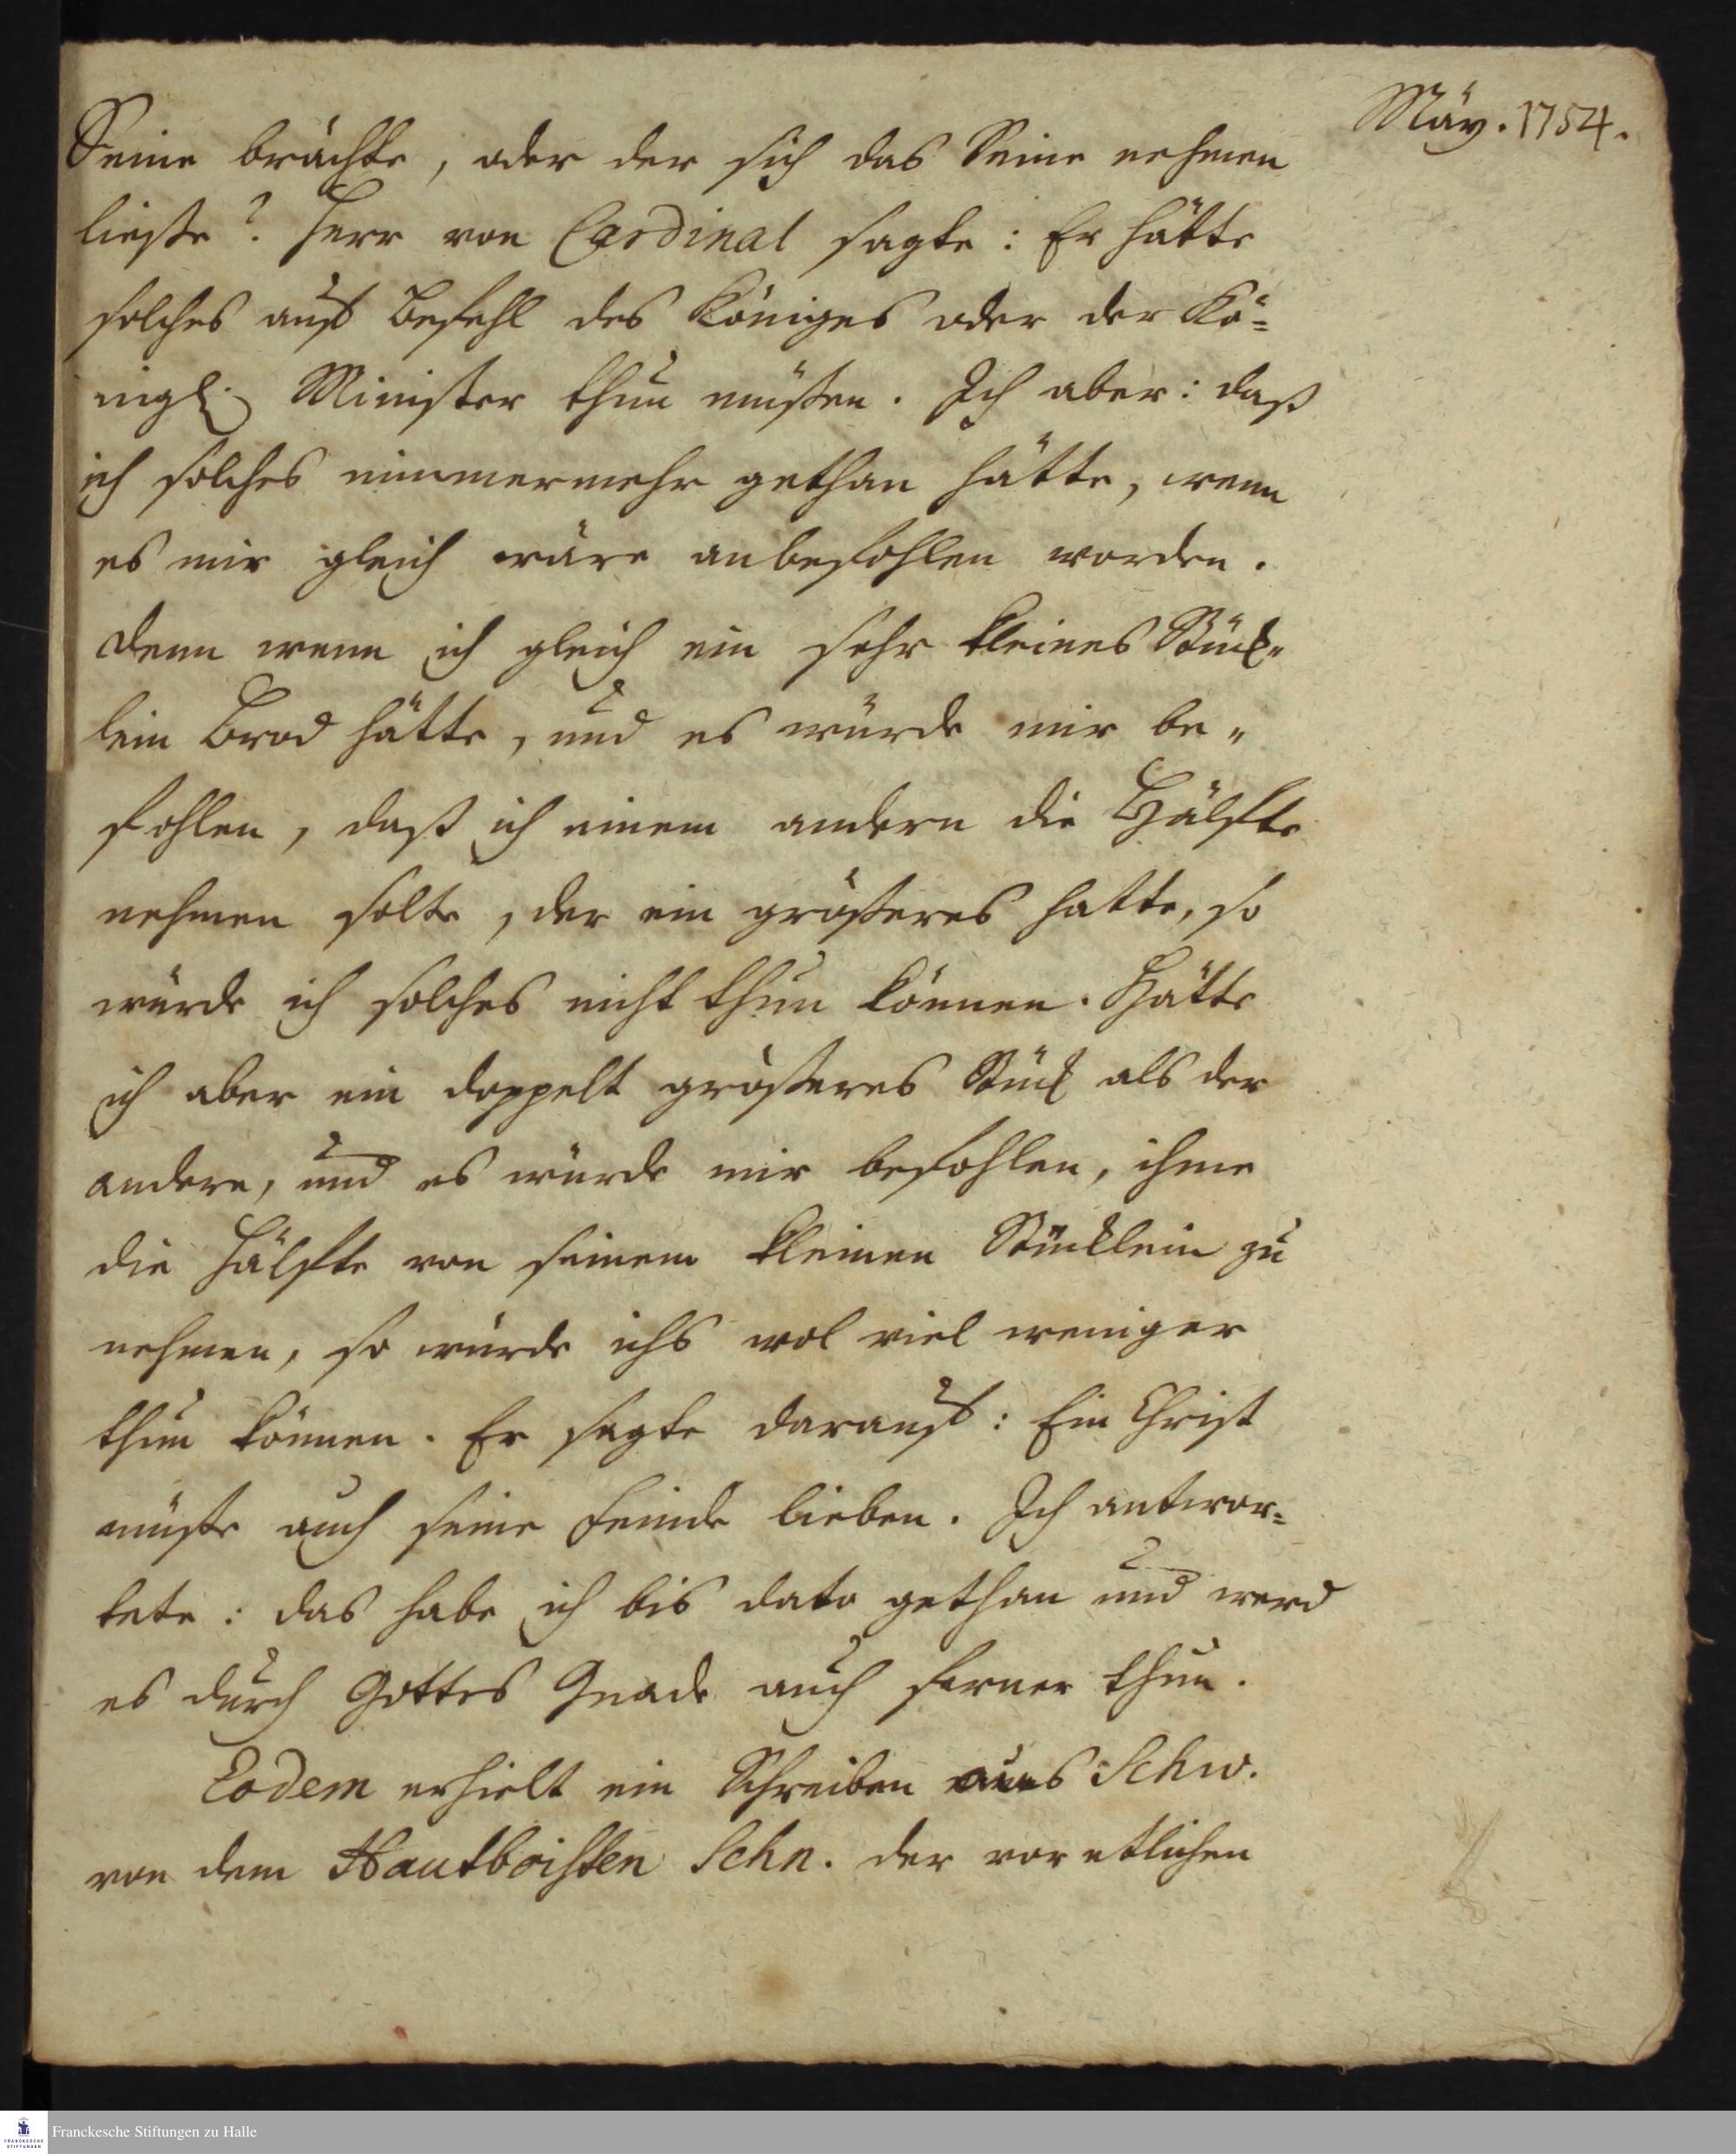 May. 1754.
Seine brächte, oder der sich das Seine nehmen
ließe? Herr von Cardinal sagte: Er hätte
solches auf Befehl des Königes oder der Kö=
nigl. Minister thun müßen. Ich aber: daß
ich solches nimmermehr gethan hätte, wenn
es mir gleich wäre anbefohlen worden.
Denn wenn ich gleich ein sehr kleines Stück"
lein Brod hätte, und es würde mir be"
fohlen, daß ich einem andern die Hälfte
nehmen solte, der ein größeres hatte, so
würde ich solches nicht thun können. Hätte
ich aber ein doppelt größeres Stück als der
andere, und es würde mir befohlen, ihme
die Hälfte von seinem kleinen Stücklein zu
nehmen, so würde ichs wol viel weniger
thun können. Er sagte darauf: Ein Christ
müßte auch seine Feinde lieben. Ich antwor=
tete: das habe ich bis dato gethan und werd
es durch Gottes Gnade auch ferner thun.
Eodem erhielt ein Schreiben aus Schw.
von dem Hautboisten Schn. der vor etlichen
Franckesche Stiftungen zu Halle
FRANCKESCHE
STIFTUNGEN